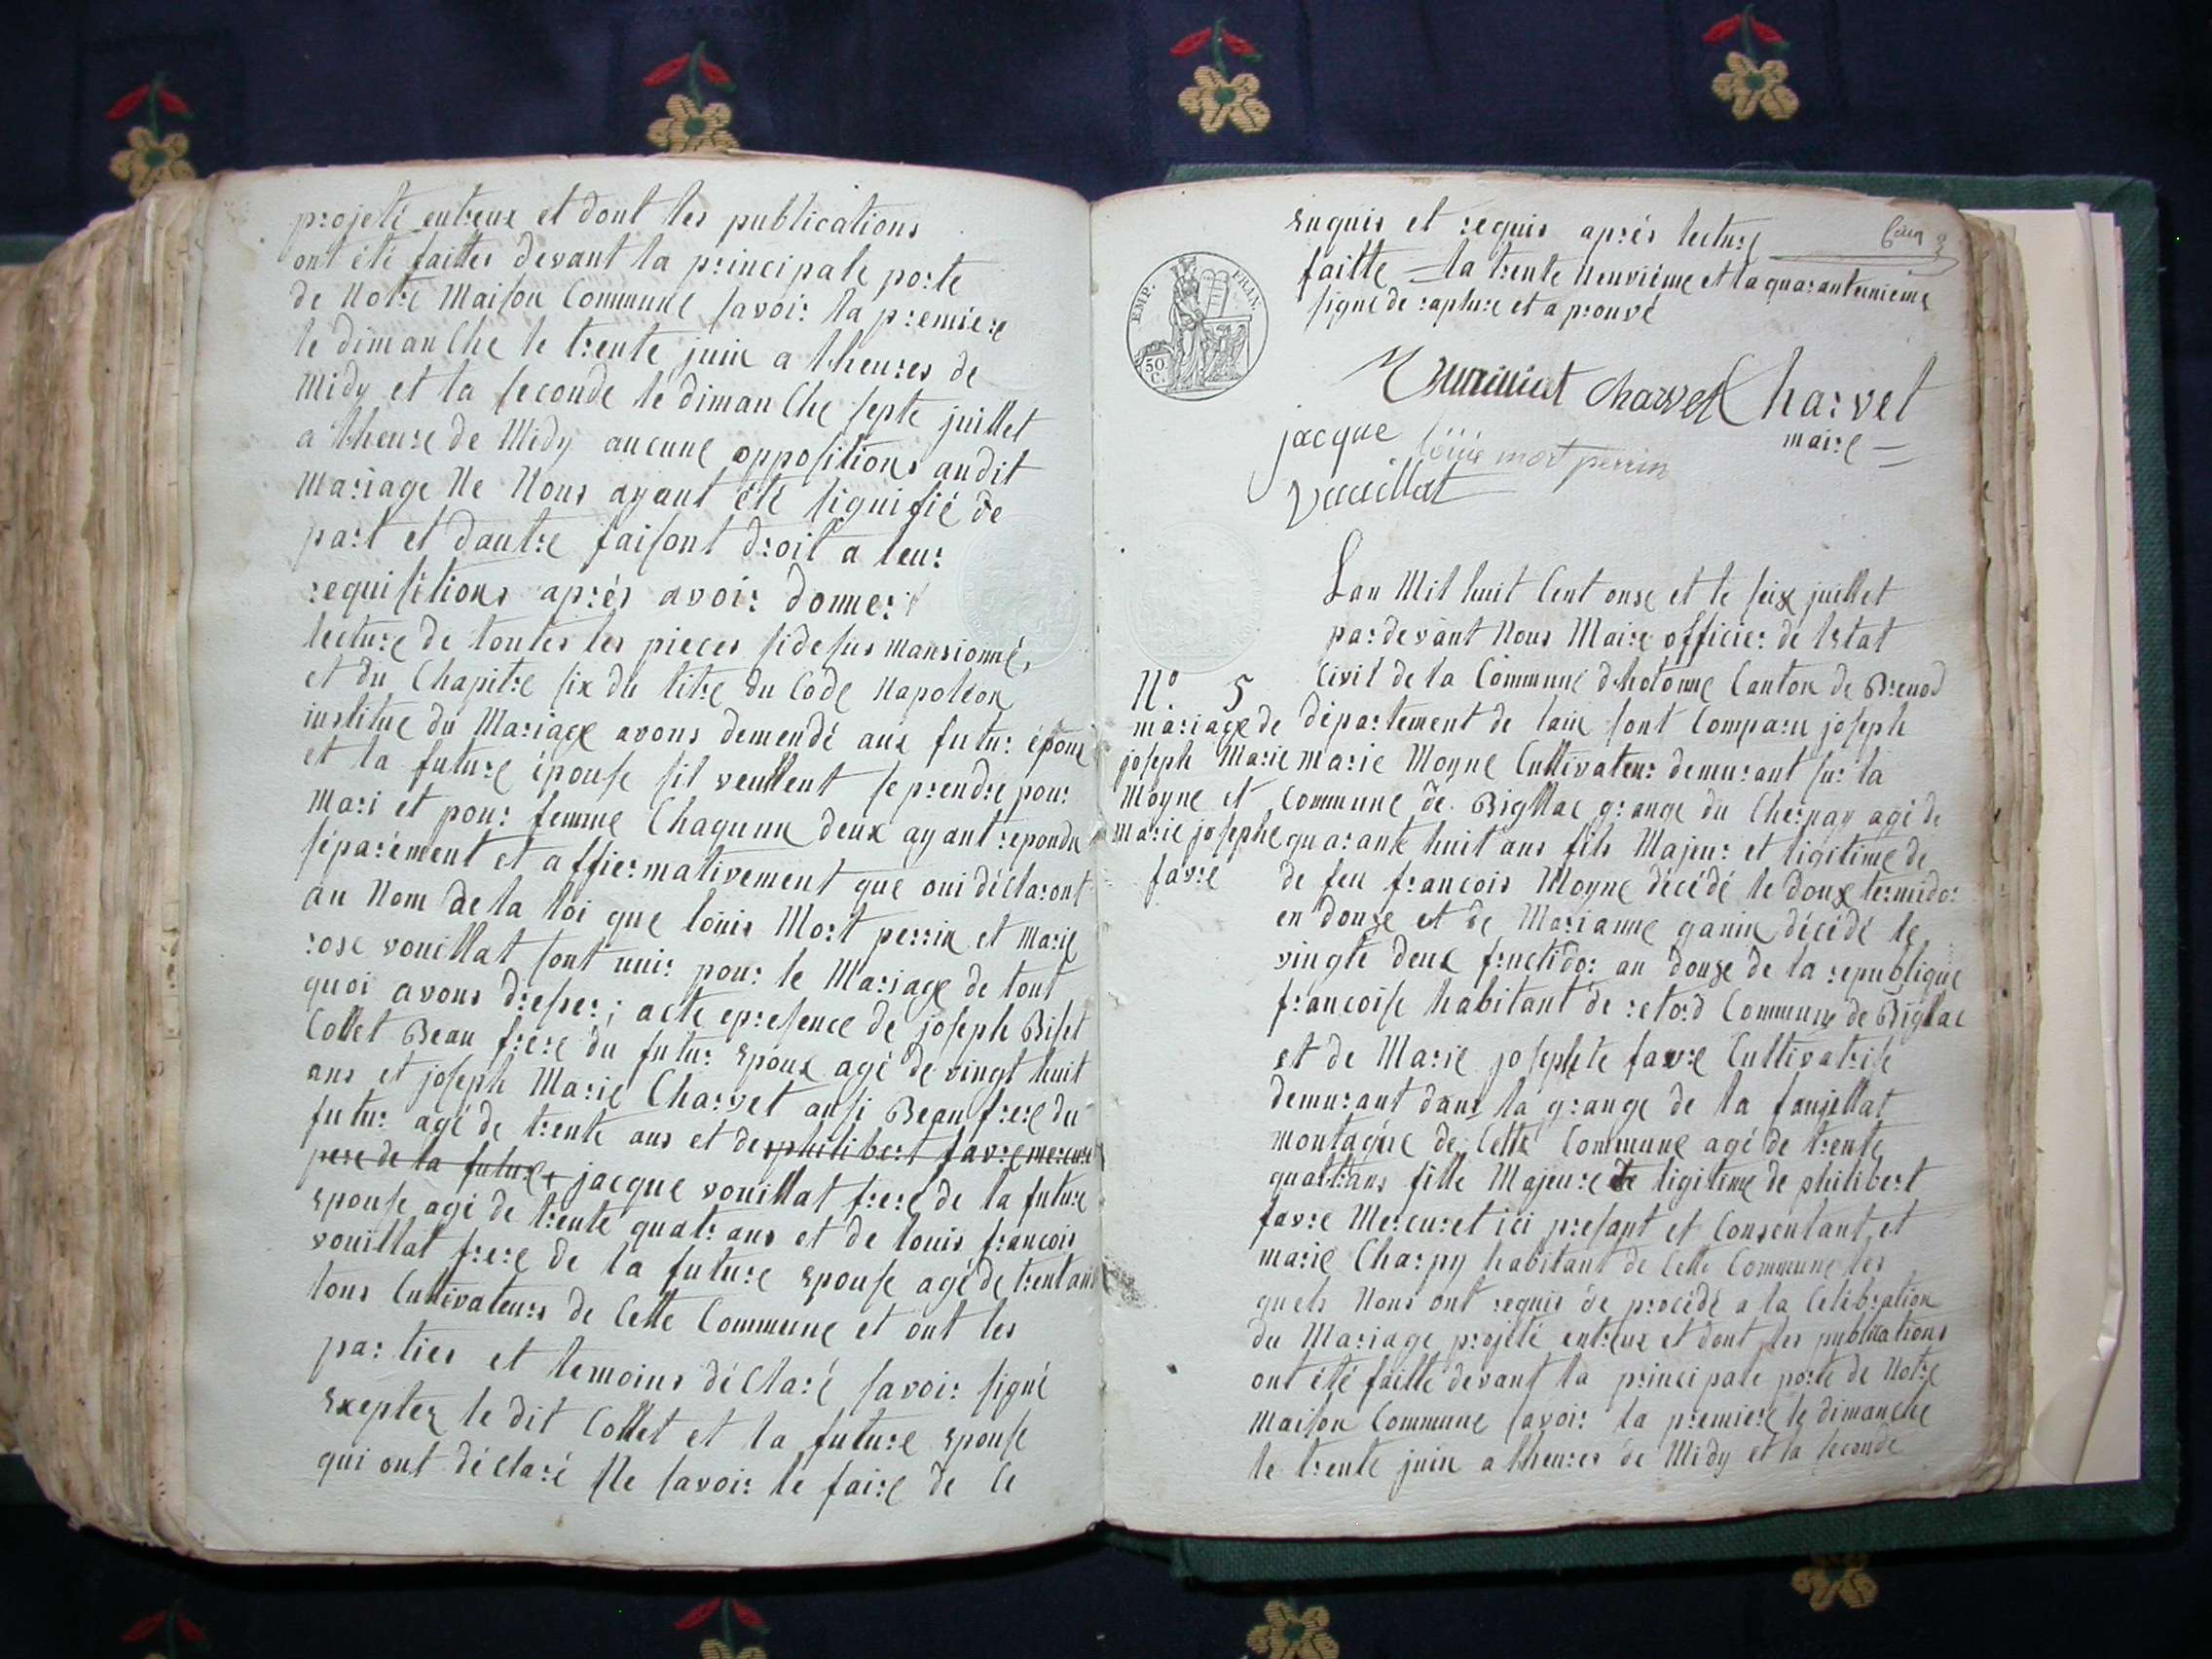 projeté entreux et dont les publications
ont été faittes devant la principale porte
de Notre Maison Commune savoir la premiere
le dimanche le trente juin a lheures de
Midy et la seconde le dimanche septe juillet
a lheure de Midy aucune oppositions audit
Mariage Ne Nous ayant été signifié de
part et dautre faisont droit a leur
requisitions aprés avoir donner
lecture de toutes les pieces sidesus mansionné,
et du Chapitre six du titre du Code Napoléon
institue du Mariage avons demendé aux futur époux
et la future épouse sil veullent se prendre pour
Mari et pour femme Chaqunn deux ayant repondu
séparément et affiermativement que oui déclaront
au Nom de la loi que louis Mort perrin et Marie
rose vouillat sont unir pour le Mariage de tout
quoi avons dresser; acte epresence de joseph Biset
Collet Beau frere du futur Epoux agé de vingt huit
ans et joseph Marie Charvet ausi Beau frere du
futur agé de trente ans et de philibert favre mercuret
pere de la future jacque vouillat frere de la future
Epouse agé de trente quatr ans et de louis francois
vouillat frere de la future Epouse agé de trent ans
tous Cultivateurs de Cette Commune et ont les
parties et temoins déclaré savoir signé
Exeptez le dit Collet et la future Epouse
qui ont déclaré Ne savoir le faire de Ce
Enquis et requis aprés lecture
faitte la trente Neuviéme et la quaranteunieme
signe de rapture et aprouvé
EMP. FRAN.
50 C.
Charvet Charvet
maire
jacque louis mort perrin
Vuillat
Lan Mil huit Cent onse et le seix juillet
pardevant Nous Maire officier de lEtat
Civil de la Commune dhotonne Canton de Brenod
département de lain sont Comparu joseph
marie Moyne Cultivateur demurant sur la
Commune de Bigllac grange du Chernay agé de
quarante huit ans fils Majeur et ligitime de
de feu francois Moyne décédé le douse termidor
en douze et de Marianne ganin décédé le
vingte deux fructidor an douze de la republique
francoise habitant de retord Commune de Bigllac
et de Marie josephte favre Cultivatrise
demurant dans la grange de la faujellat
montagne de Cette Commune agé de trente
quattrans fille Majeure de ligitime de philibert
favre Mercuret ici presant et Consentant et
marie Charpy habitant de Cette Commune les
quels Nous ont requis de procédé a la Celébration
du Mariage projeté entreux et dont les publications
ont été faitte devant la principale porte de Notre
Maison Commune savoir la premiere le dimanche
le trente juin a lheures de Midy et la seconde
No. 5
mariage de
joseph Marie
Moyne et
Marie josephe
favre